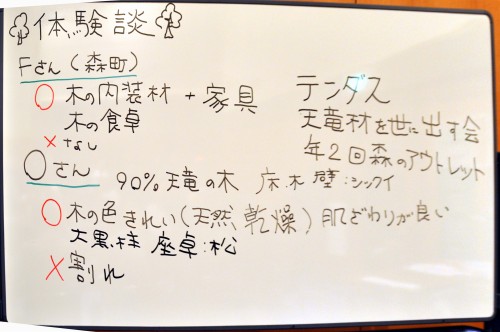 体験談
Fさん(森町)
○木の内装材+家具
木の食卓
×なし
○さん
90%天竜の木 床:木 壁:シックイ
○木の色きれい(天然乾燥)肌ざわりが良い
大黒柱 座卓:松
×割れ
テンダス
天竜材を世に出す会
年2回森のアウトレット